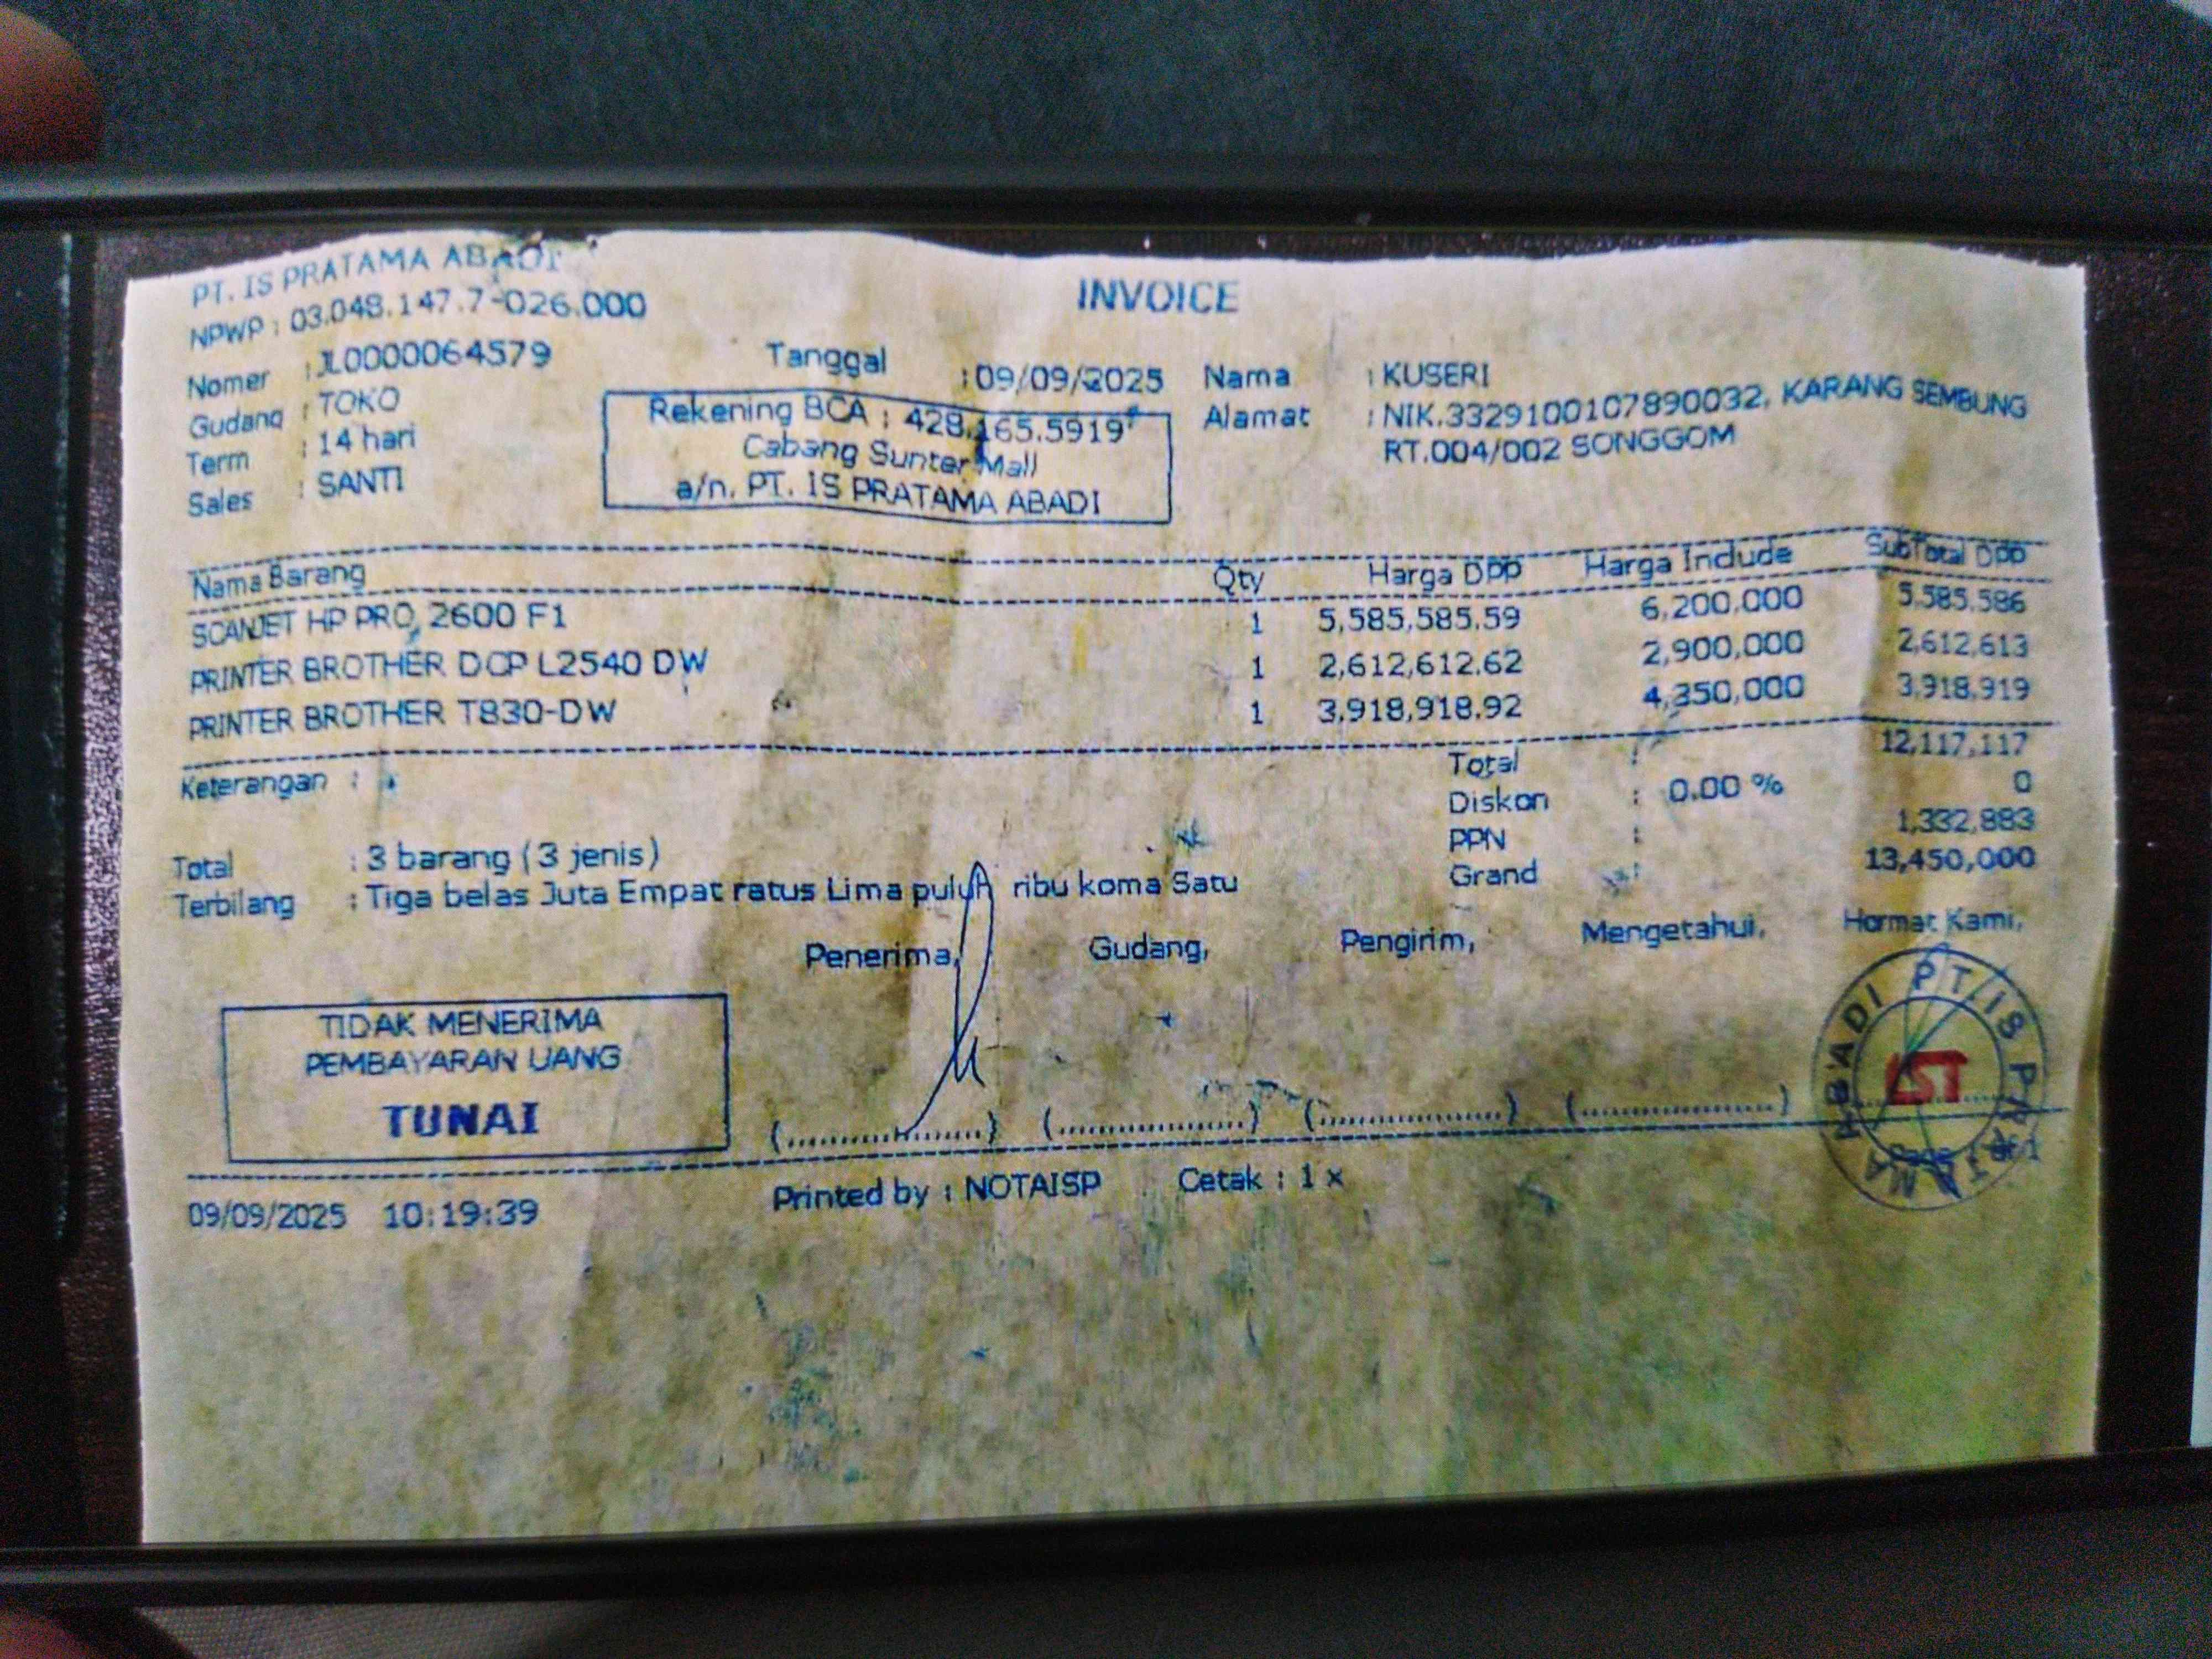 PT. IS PRATAMA ABADI
NPWP : 03.048.147.7-026.000
INVOICE
Nomer : JL0000064579
Gudang : TOKO
Term : 14 hari
Sales : SANTI
Tanggal : 09/09/2025
Rekening BCA : 428.165.5919
Cabang Sunter Mall
a/n. PT. IS PRATAMA ABADI
Nama : KUSERI
Alamat : NIK.3329100107890032, KARANG SEMBUNG
RT.004/002 SONGGOM
Nama Barang Qty Harga DPP Harga Include SubTotal DPP
SCANJET HP PRO 2600 F1 1 5,585,585.59 6,200,000 5,585,586
PRINTER BROTHER DCP L2540 DW 1 2,612,612.62 2,900,000 2,612,613
PRINTER BROTHER T830-DW 1 3,918,918.92 4,350,000 3,918,919
Keterangan :
Total : 12,117,117
Diskon : 0.00 % 0
PPN : 1,332,883
Grand : 13,450,000
Total : 3 barang (3 jenis)
Terbilang : Tiga belas Juta Empat ratus Lima puluh ribu koma Satu
Penerima, Gudang, Pengirim, Mengetahui, Hormat Kami,
TIDAK MENERIMA
PEMBAYARAN UANG
TUNAI
(....................) (....................) (....................) (....................)
PT IS PRATAMA ABADI
IST
09/09/2025 10:19:39 Printed by : NOTAISP Cetak : 1 x